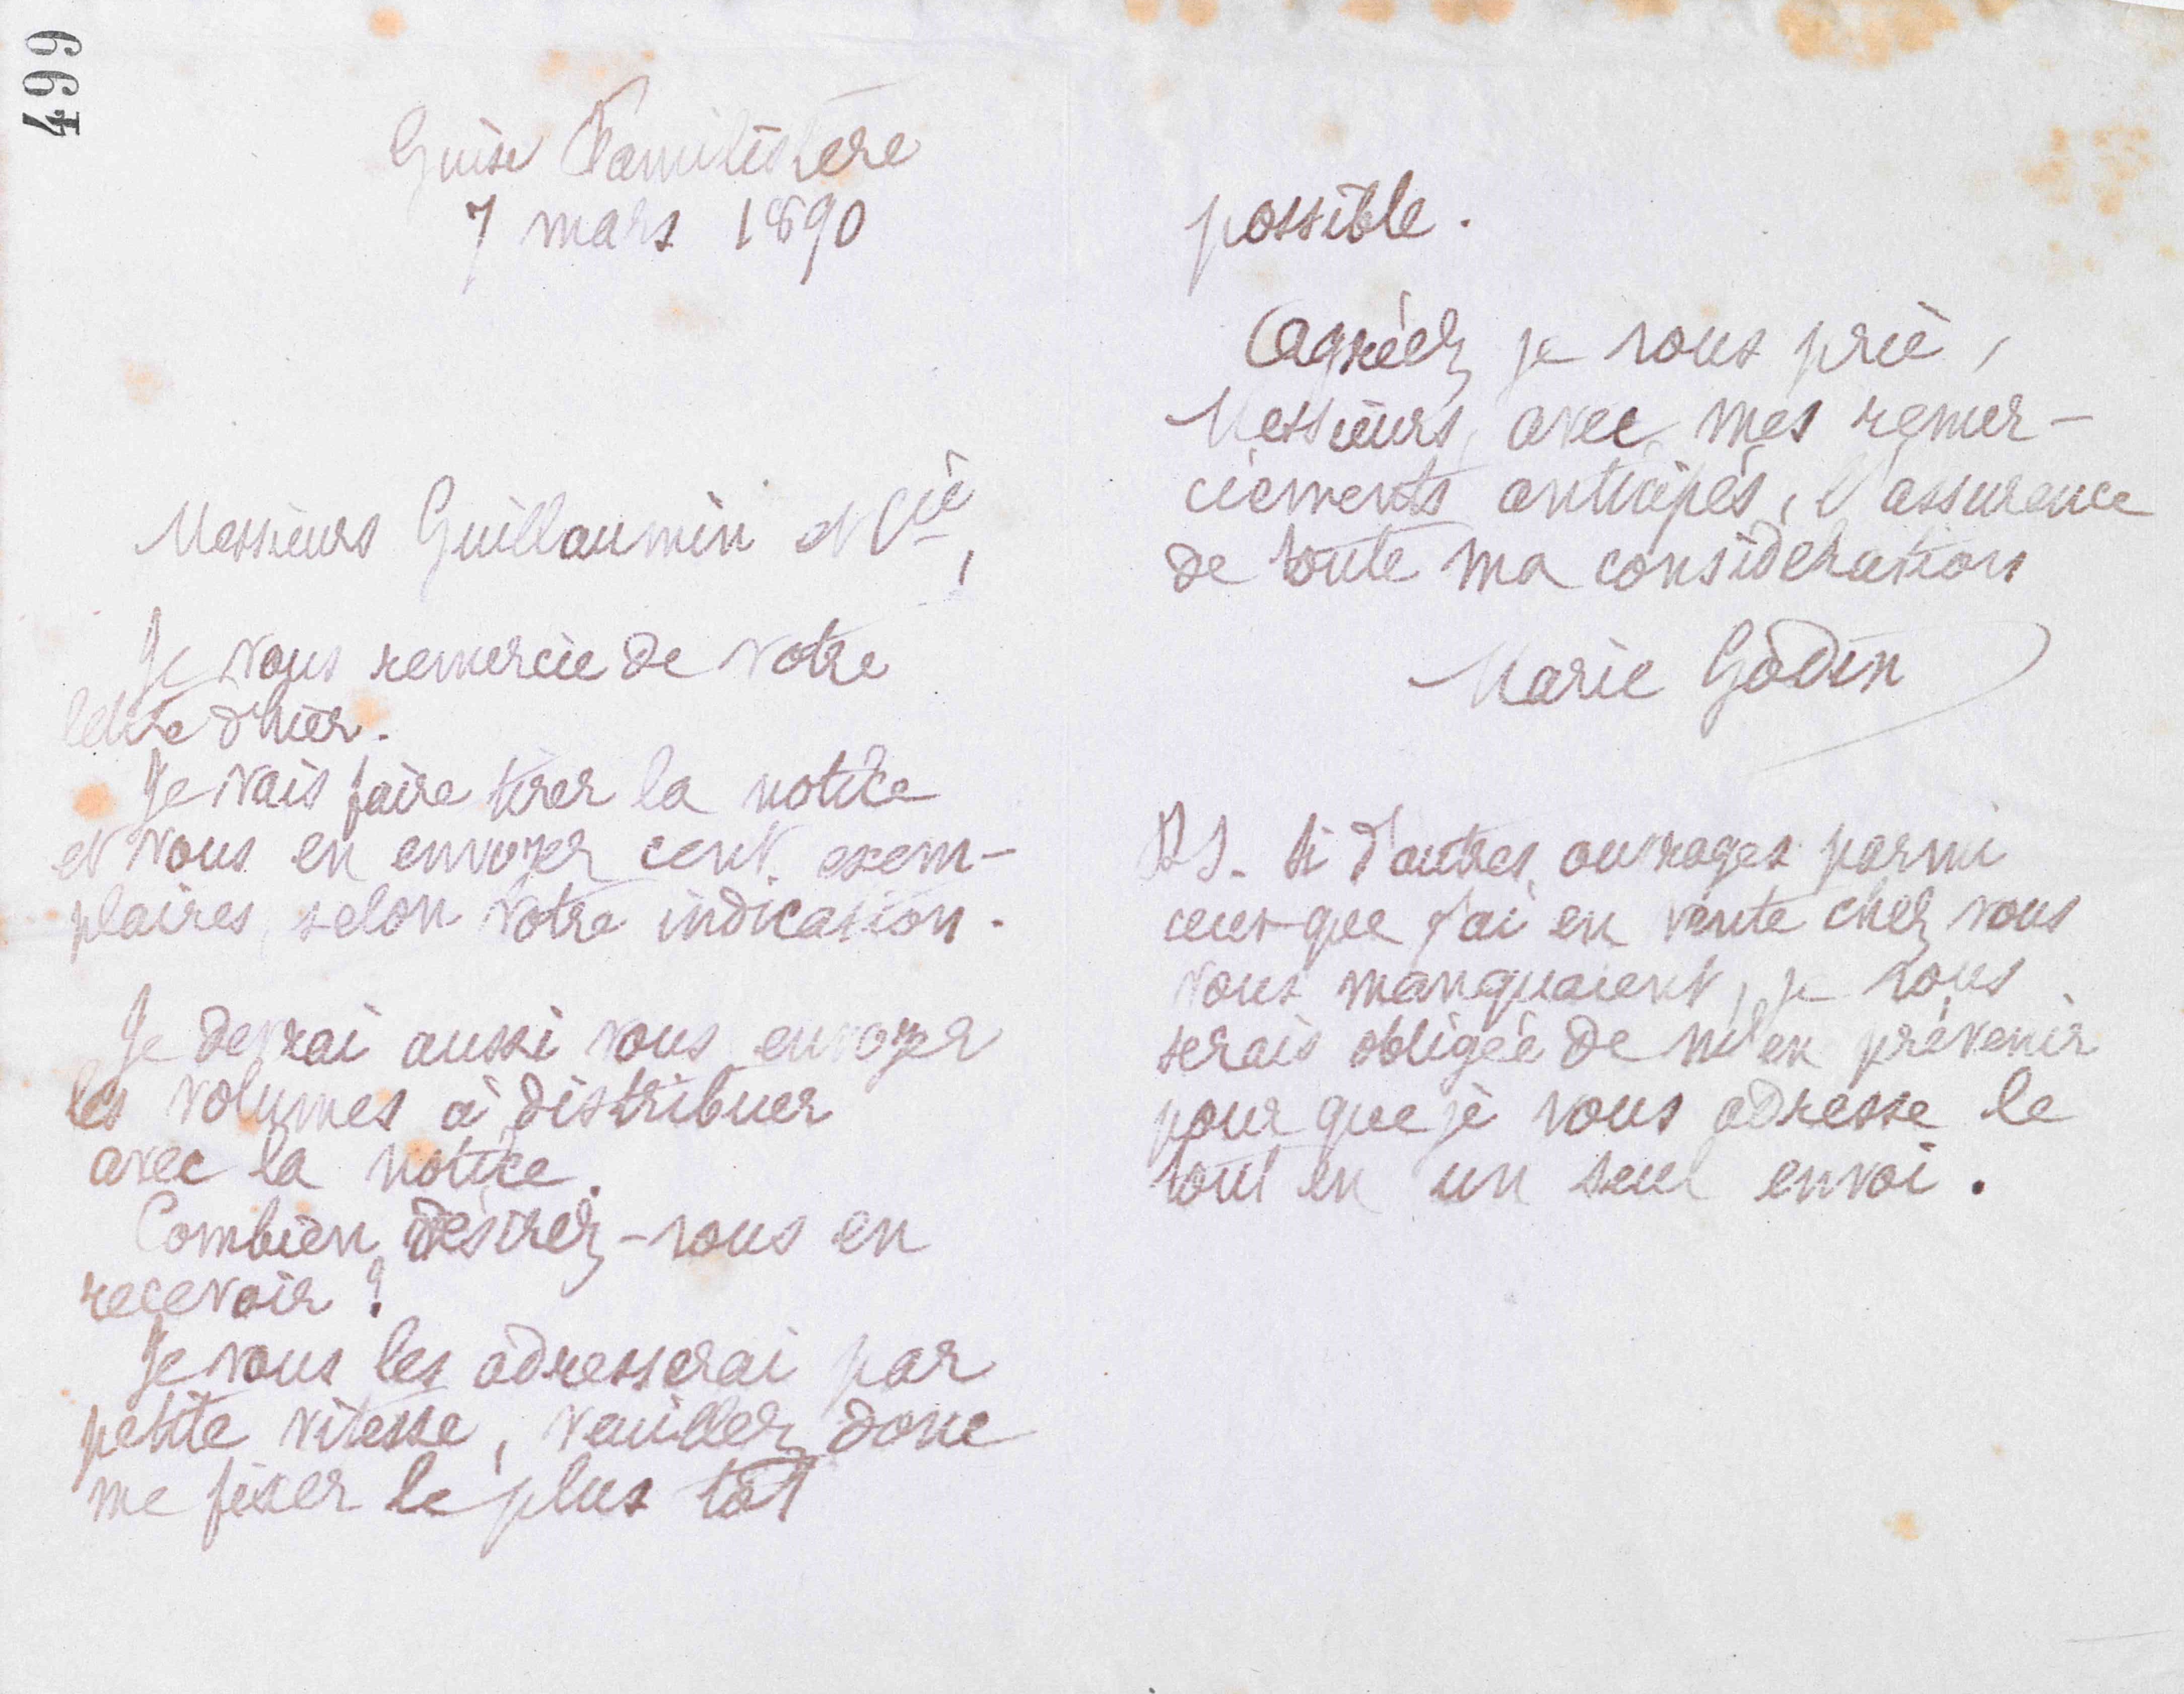 499
Guise Familistère
7 mars 1890
Messieurs Guillaumin et Cie,
Je vous remercie de votre
lettre d'hier.
Je vais faire tirer la notice
et vous en envoyer cent exem-
plaires, selon votre indication.
Je devrai aussi vous envoyer
les volumes à distribuer
avec la notice.
Combien désirez-vous en
recevoir ?
Je vous les adresserai par
petite vitesse, veuillez donc
me fixer le plus tôt
possible.
Agréez je vous prie,
Messieurs, avec mes remer-
ciements anticipés, l'assurance
de toute ma considération
Marie Godin
PS. Si d'autres ouvrages parmi
ceux que j'ai en vente chez vous
vous manquaient, je vous
serais obligée de m'en prévenir
pour que je vous adresse le
tout en un seul envoi.